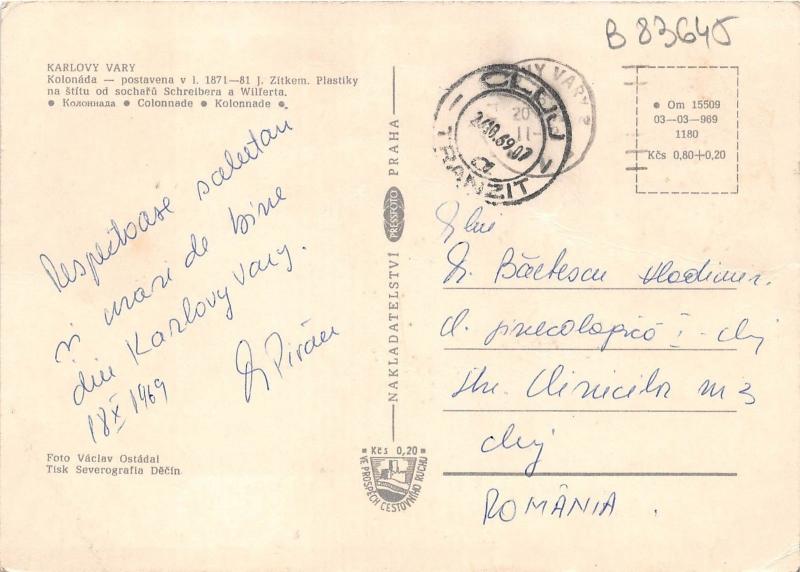 B 83645
KARLOVY VARY
Kolonáda — postavena v l. 1871—81 J. Zítkem. Plastiky
na štítu od sochařů Schreibera a Wilferta.
● Колоннада ● Colonnade ● Kolonnade ●
Respectoase salutari
si urari de bine
din Karlovy Vary.
18 X 1969
Foto Václav Ostádal
Tisk Severografia Děčín
NAKLADATELSTVÍ PRESSFOTO PRAHA
Kčs 0,20
VE PROSPĚCH CESTOVNÍHO RUCHU
VARY
20
II
CLUJ
24.10.69.07
a
TRANZIT
● Om 15509
03—03—969
1180
Kčs 0,80+0,20
Dlui
Dr.
Cl. ginecologică I - Cluj
Str. Clinicilor
Cluj
ROMÂNIA.